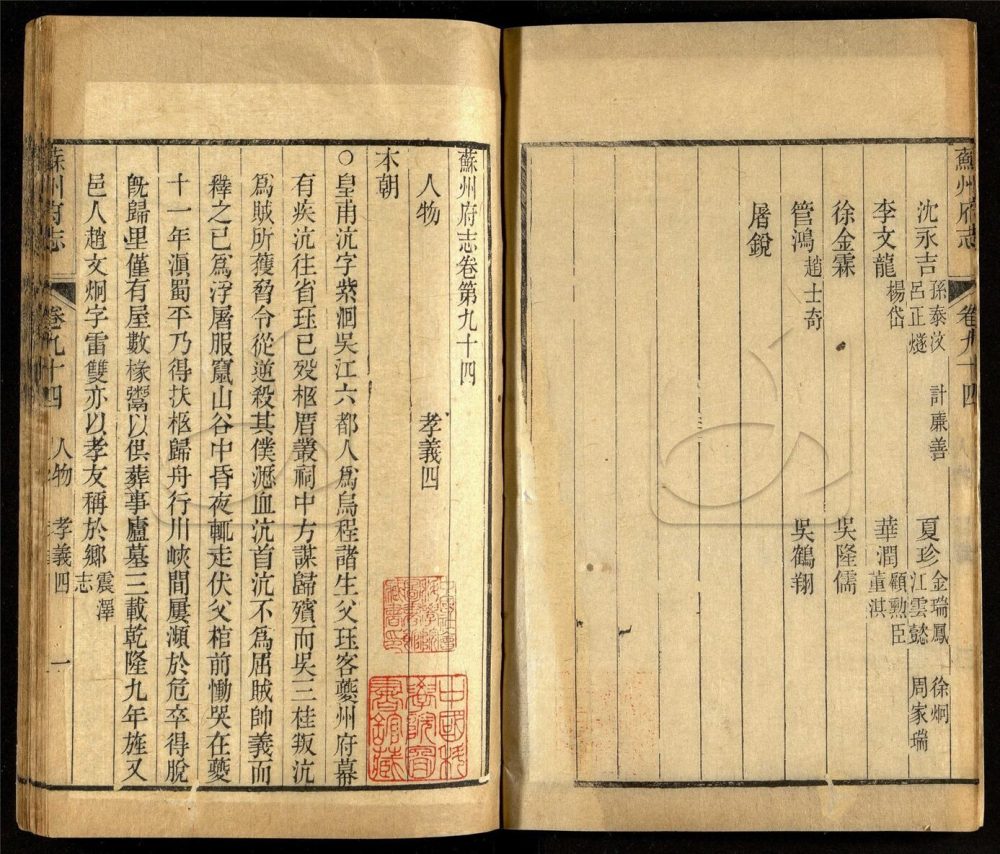 蘇州府志 卷九十四
沈永吉 孫泰汶 呂正燧 計廉善 夏珍 金瑞鳳 江雲懿 徐炯 周家瑞
李文龍 楊岱 華潤 顧勲臣 董淇
徐金霖 吳隆儒
管鴻 趙士奇 吳鶴翔
屠銳
蘇州府志卷第九十四
人物 孝義四
本朝
○皇甫沆字紫洄吳江六都人爲烏程諸生父珏客夔州府幕
有疾沆往省珏已歿柩厝叢祠中方謀歸殯而吳三桂叛沆
爲賊所獲脅令從逆殺其僕濺血沆首沆不爲屈賊帥義而
釋之已爲浮屠服竄山谷中昏夜輒走伏父棺前慟哭在夔
十一年滇蜀平乃得扶柩歸舟行川峽間屢瀕於危卒得脫
旣歸里僅有屋數椽鬻以供葬事廬墓三載乾隆九年旌又
邑人趙文炯字雷雙亦以孝友稱於鄉 震澤志
蘇州府志 卷九十四 人物 孝義四 一
中國科學院圖書館藏